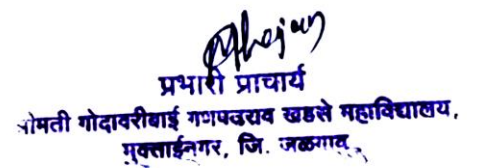 प्रभारी प्राचार्य
गोदावरीबाई गणपतराव खडसे महाविद्यालय,
मुक्ताईनगर, जि. जळगाव